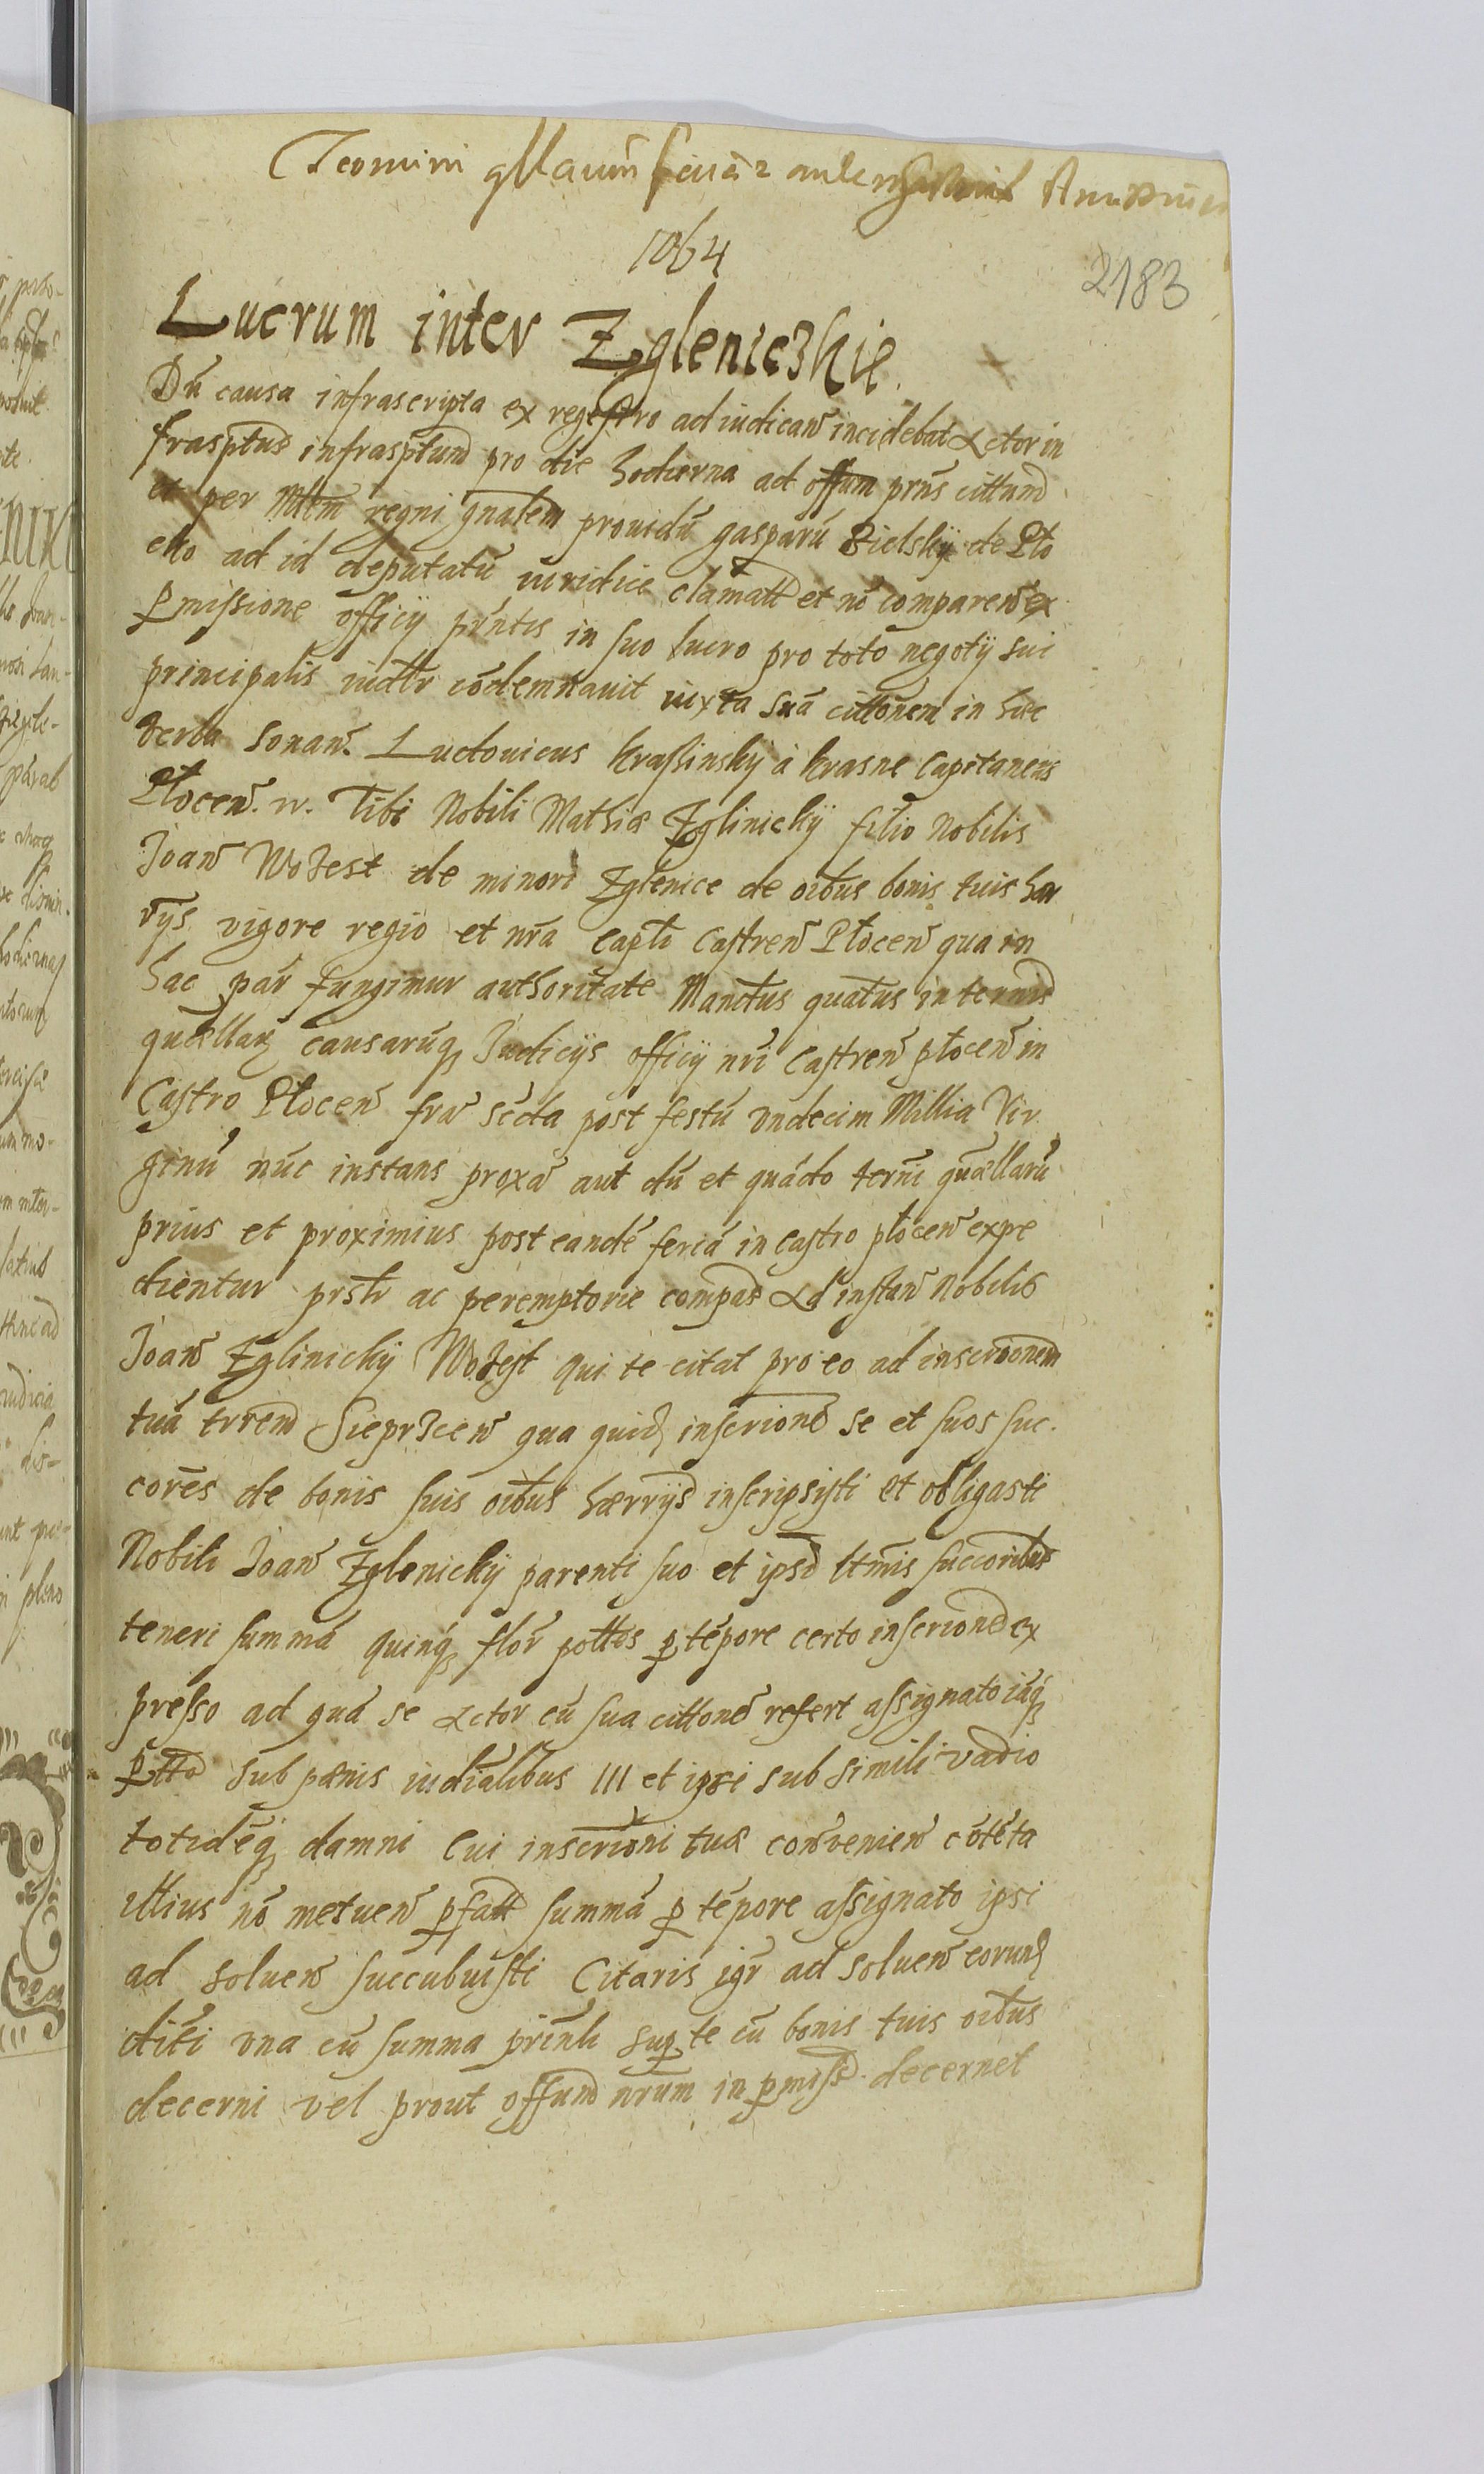 Termini
1064
2183
Lucrum inter Zgleniczkie.
Dū causa infrascripta ex regestro ad iudicañ incidebat Actor in
frasptus infrasptum pro die hodierna ad offum prñs cittum
et per Mlem regni gnalem prouidū gasparū Bielskÿ de Plo
cko ad id deputatū iuridice clamatt et nō compareñ ex
Pmissione officÿ prñtis in suo lucro pro toto negotÿ sui
principalis iudtr cōdemnauit iuxta suā cittōnem in hæc
verba sonañ. Ludouicus Krassinskÿ à Krasne Capitaneus
Ploceñ. Tibi Nobili Mathiæ Zglinickÿ filio Nobilis
Joañ Wozest de minori Zglenice de oībus bonis tuis hær
rÿs vigore regio et nrā Capti Castreñ Ploceñ qua in
hac par fungimur authoritate Manctus quatus in termis
quællarū causarūq Judicÿs officÿ nri Castreñ ploceñ in
Castro Ploceñ fra secda post festū vndecim Millia Vir
ginū nūc instans proxa aut dū et quādo termī quællarū
prius et proximius post eandē feriā in castro ploceñ expe
dientur prstr ac peremptorie compas Ad instañ Nobilis
Joañ Zglinickÿ Wozest qui te citat pro eo ad inscrionem
tuā trrem Sieprzceñ qua quid inscrione se et suos suc.
cores de bonis suis oībus hærrÿs inscripsisti et obligasti
Nobili Joañ Zglenickÿ parenti suo et ipsi ltmis succoribus
teneri summā quinq flor pollos p tēpore certo inscrione ex
presso ad quā se Actor cū sua cittone refert assignato iāq
sub pænis iudialibus III et ipsi sub simili vadio
totidēq damni Cui inscrioni tuæ conuenieñ cōtēta
illius nō metueñ pfatt summā p tēpore assignato ipsi
ad solueñ succubuisti Citaris igr ad solueñ eorund
diēi vna cū summa prīnli sup te cū bonis tuis oībus
decerni vel prout offum nrum in pmiss decernet